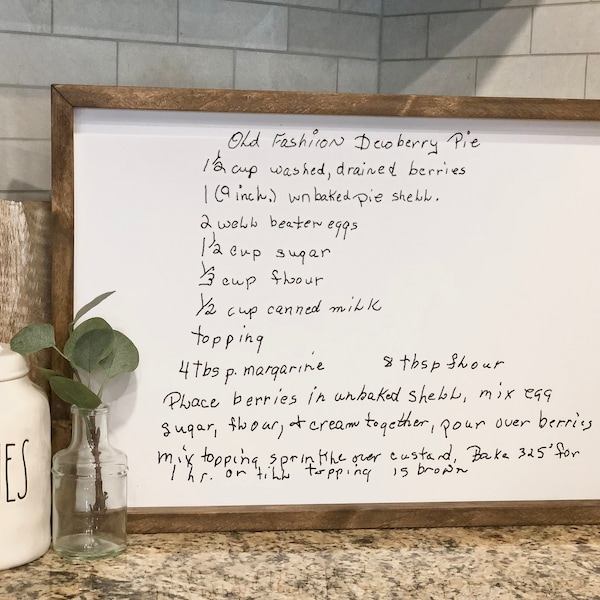 Old Fashiion Dewberry Pie
1 1/2 cup washed, drained berries
1 (9 inch.) unbaked pie shell.
2 well beaten eggs
1 1/2 cup sugar
1/3 cup flour
1/2 cup canned milk
topping
4 tbsp. margarine 8 tbsp flour
Place berries in unbaked shell, mix egg
sugar, flour, & cream together, pour over berries
mix topping sprinkle over custard. Bake 325° for
1 hr. or till topping is brown
ES